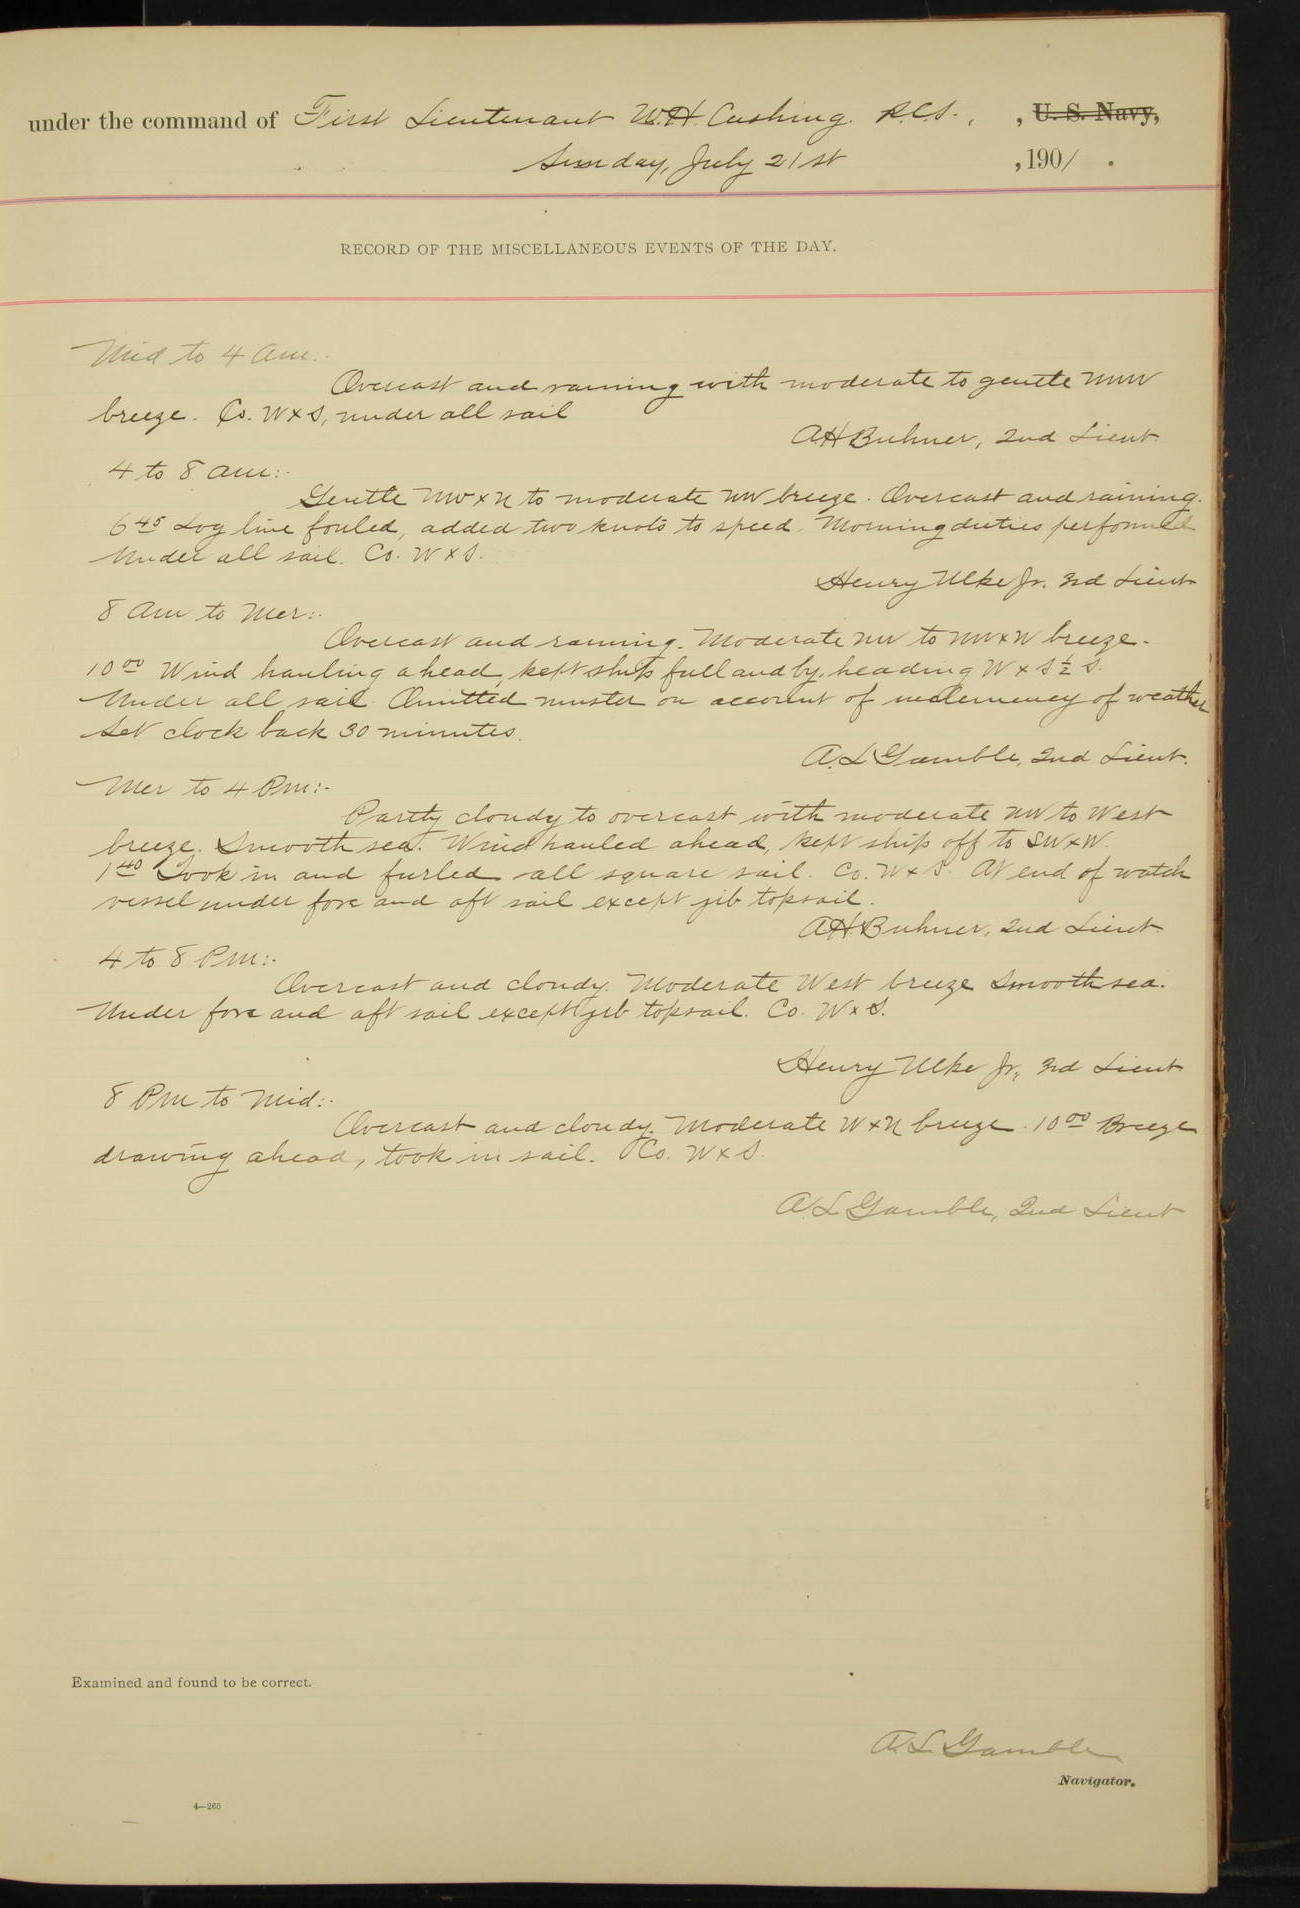 under the command of First Lieutenant W.H. Cushing. R.C.S., , U. S. Navy,
Sunday, July 21st , 1901 .
RECORD OF THE MISCELLANEOUS EVENTS OF THE DAY.
Mid to 4 am:-
Overcast and raining with moderate to gentle NNW
breeze. Co. WxS, under all sail
A.H. Buhner, 2nd Lieut.
4 to 8 am:-
Gentle NWxN to moderate NW breeze. Overcast and raining.
6 45 Log line fouled, added two knots to speed. Morning duties performed
Under all sail. Co. WxS.
Henry Ulke Jr. 3rd Lieut
8 am to Mer:-
Overcast and raining. Moderate NW to NWxW breeze.
10 00 Wind hauling ahead, kept ship full and by, heading WxS 1/2 S.
Under all sail. Omitted muster on account of inclemency of weather
Set clock back 30 minutes.
A.L. Gamble, 2nd Lieut.
Mer to 4 Pm:-
Partly cloudy to overcast with moderate NW to West
breeze. Smooth sea. Wind hauled ahead, kept ship off to SWxW.
1 40 Took in and furled all square sail. Co. WxS. At end of watch
vessel under fore and aft sail except jib topsail.
A.H. Buhner, 2nd Lieut.
4 to 8 Pm:-
Overcast and cloudy. Moderate West breeze Smooth sea.
Under fore and aft sail except jib topsail. Co. WxS.
Henry Ulke Jr., 3rd Lieut
8 Pm to Mid:-
Overcast and cloudy. Moderate WxN breeze. 10 00 Breeze
drawing ahead, took in sail. Co. WxS.
A.L. Gamble, 2nd Lieut
Examined and found to be correct.
A.L. Gamble
Navigator.
4—265